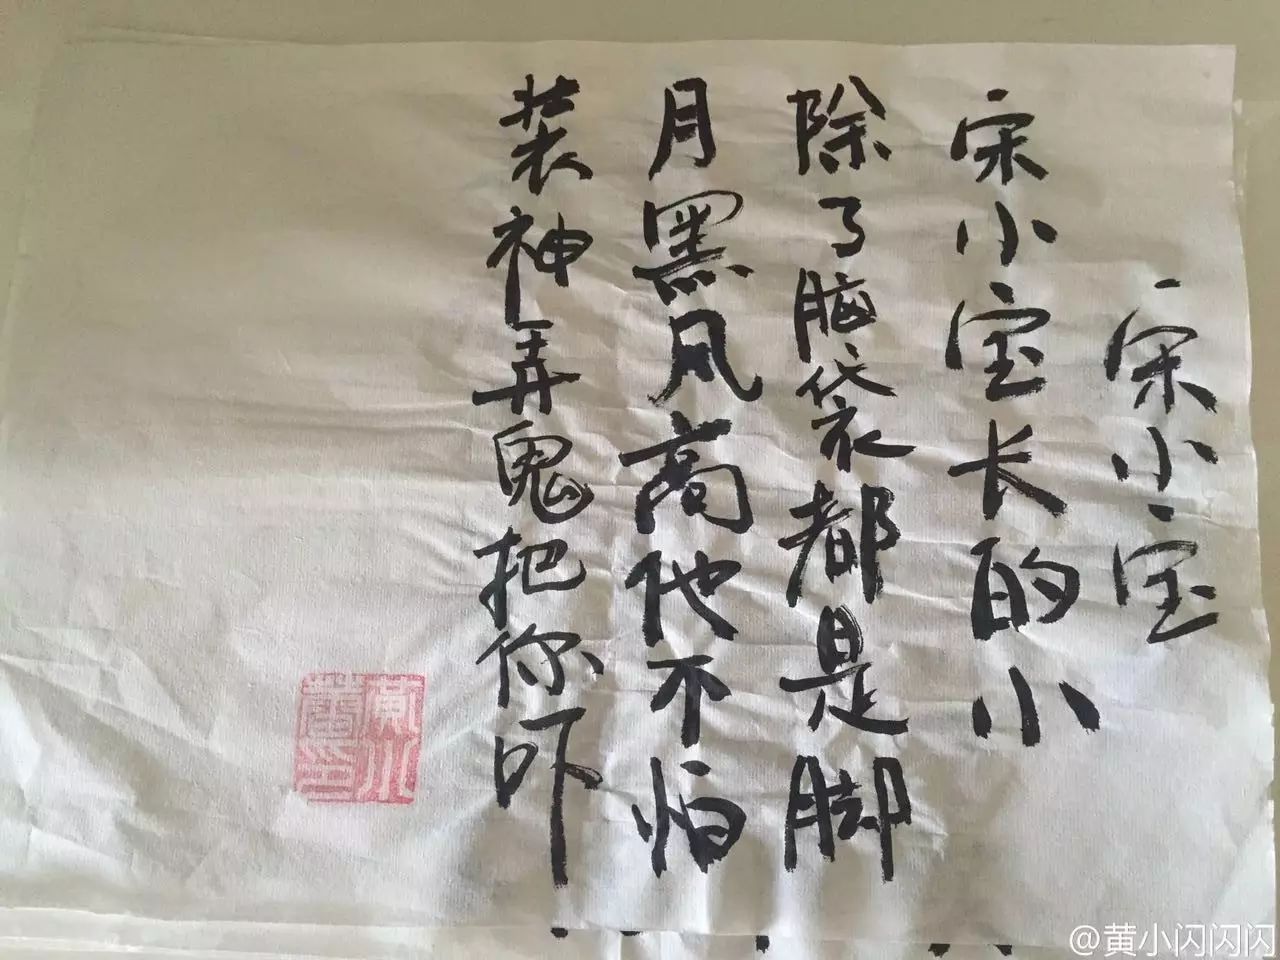 宋小宝
宋小宝长的小
除了脑袋都是脚
月黑风高他不怕
装神弄鬼把你吓
@黄小闪闪闪